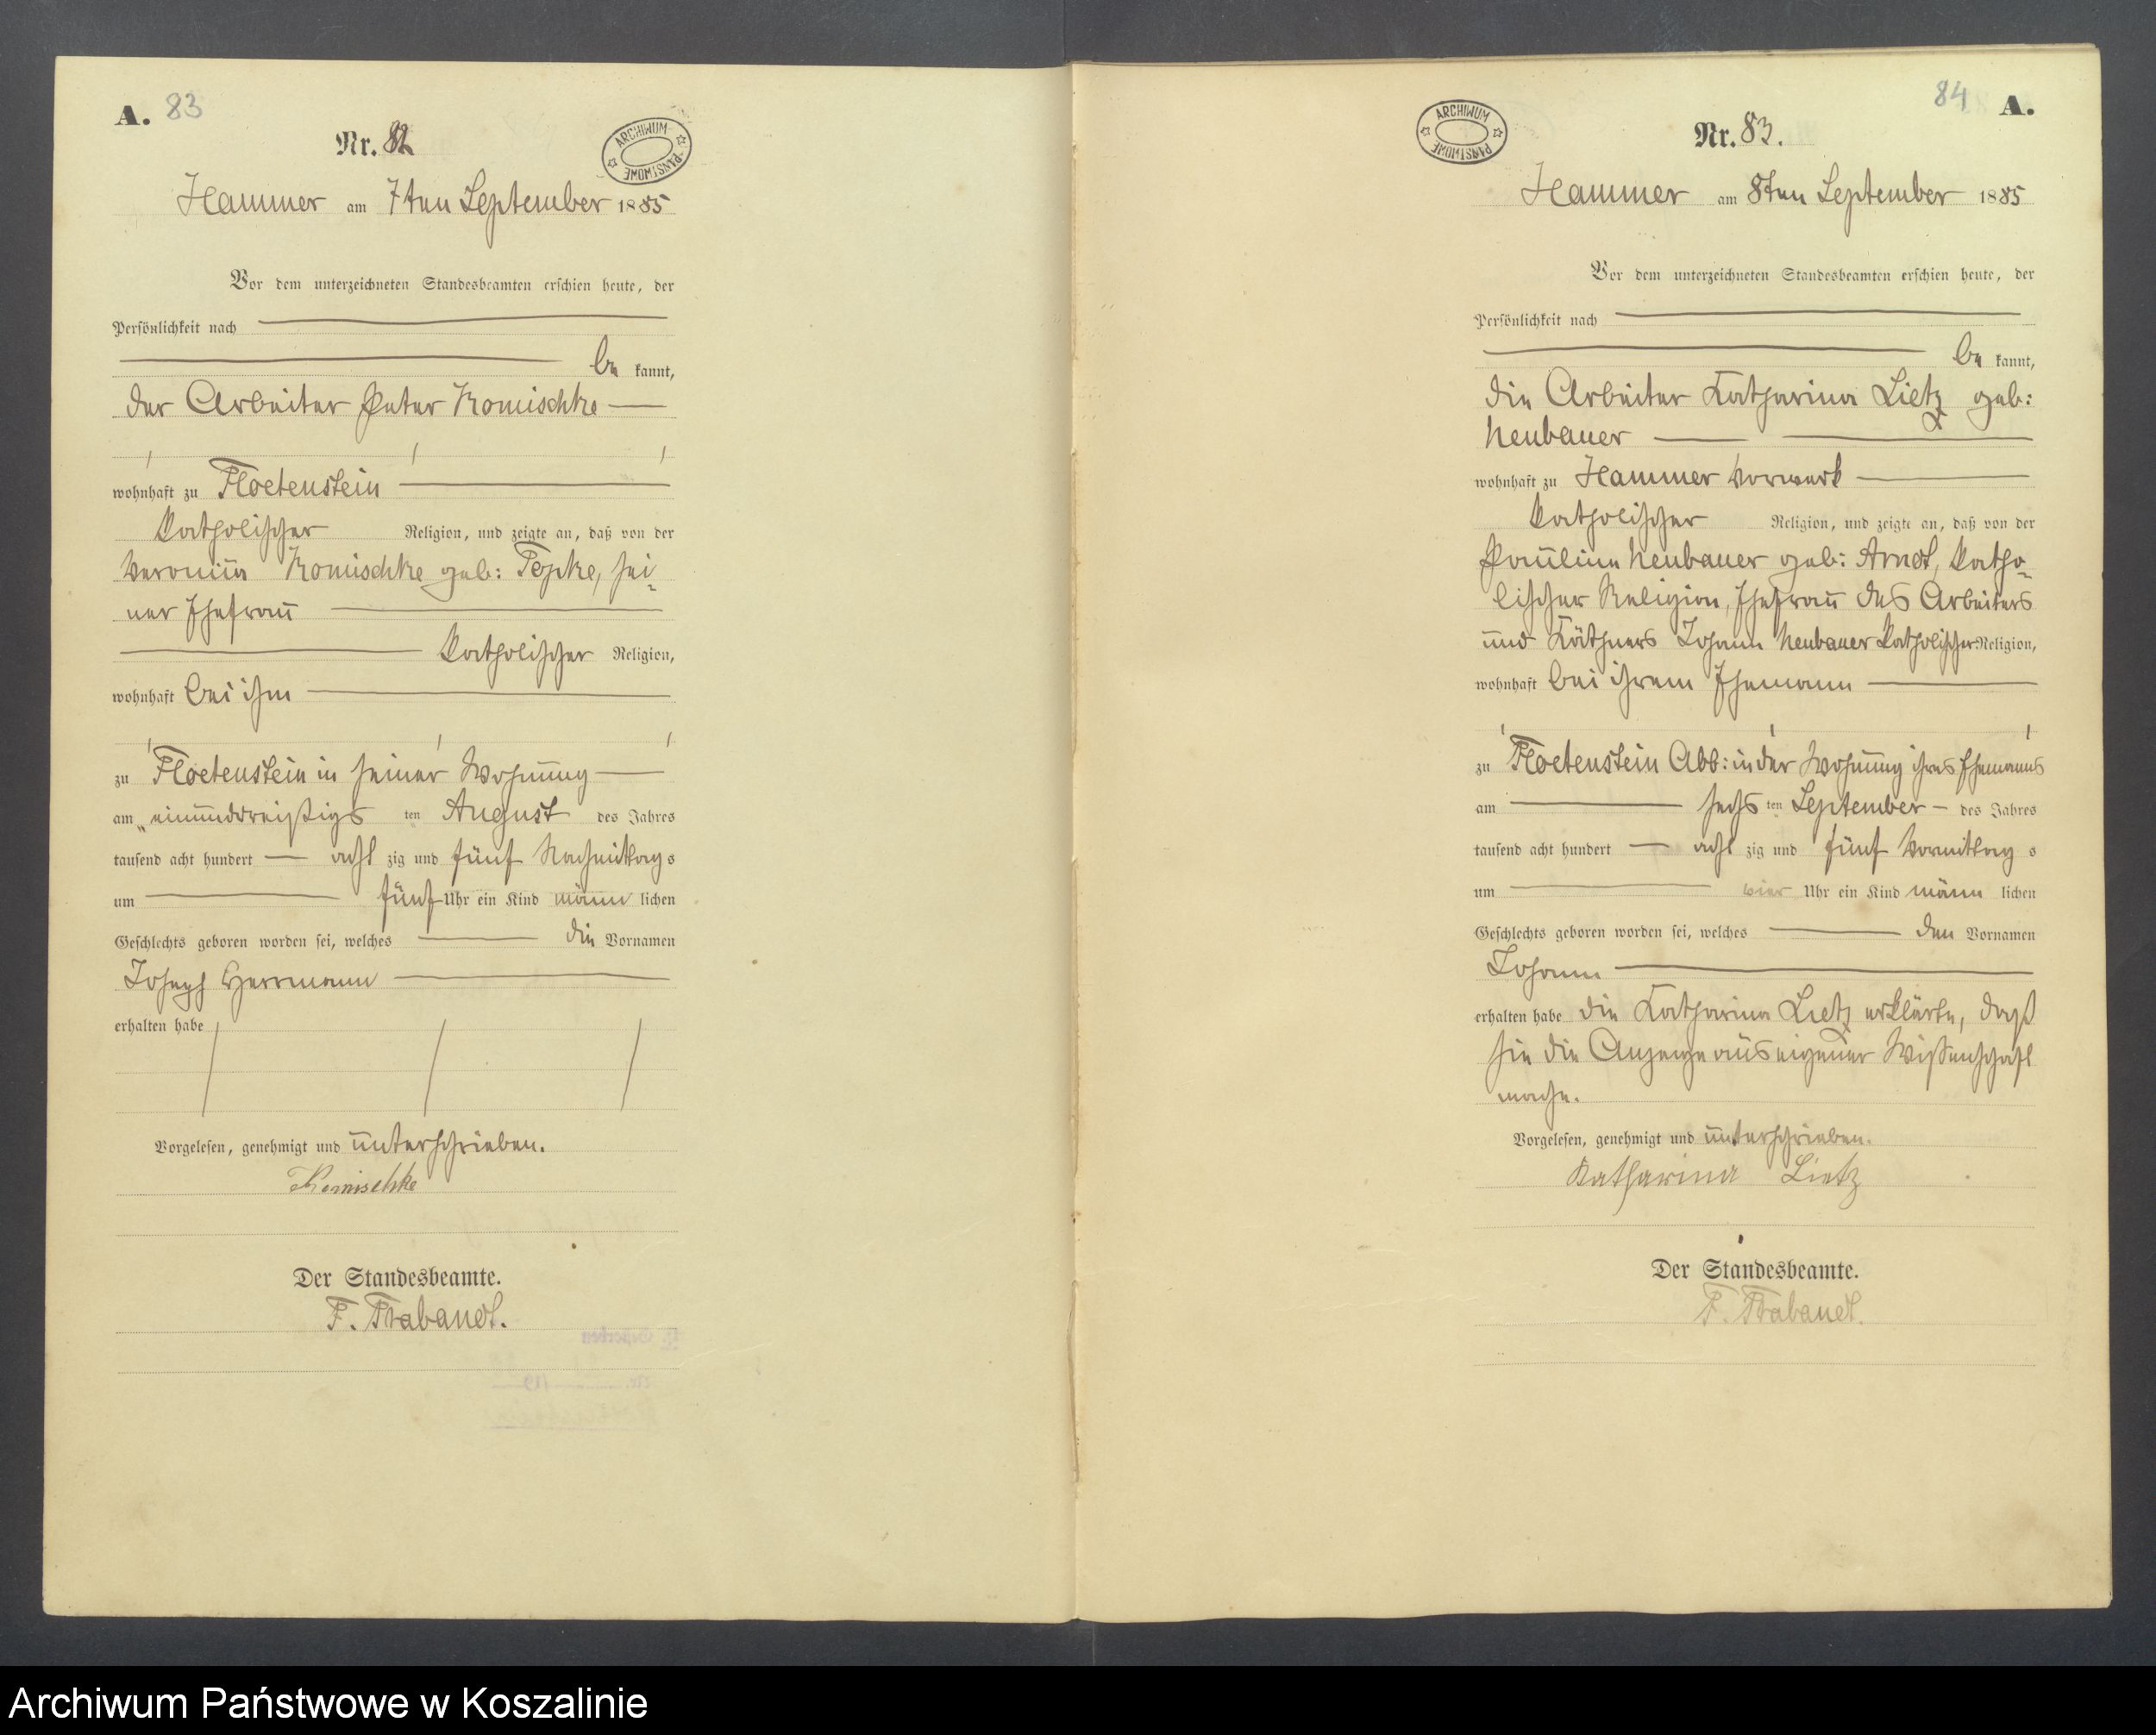 A. 83
Nr. 82
ARCHIWUM PAŃSTWOWE
Hammer am 7ten September 1885
Vor dem unterzeichneten Standesbeamten erschien heute, der
Persönlichkeit nach
be kannt,
der Arbeiter Peter Komischke
wohnhaft zu Floetenstein
katholischer Religion, und zeigte an, daß von der
Komischke geb: Topke, sei-
ner Ehefrau
katholischer Religion,
wohnhaft bei ihm
zu Floetenstein in seiner Wohnung
am einunddreißigs ten August des Jahres
tausend acht hundert acht zig und fünf Nachmittags
um fünf Uhr ein Kind männ lichen
Geschlechts geboren worden sei, welches die Vornamen
Joseph Herrmann
erhalten habe
Vorgelesen, genehmigt und unterschrieben.
Komischke
Der Standesbeamte.
F. Brabandt.
84 A.
ARCHIWUM PAŃSTWOWE
Nr. 83.
Hammer am 8ten September 1885
Vor dem unterzeichneten Standesbeamten erschien heute, der
Persönlichkeit nach
be kannt,
die Arbeiter Katharina Lietz geb:
Neubauer
wohnhaft zu Hammer Vorwerk
katholischer Religion, und zeigte an, daß von der
Pauline Neubauer geb: Arndt, katho-
lischer Religion, Ehefrau des Arbeiters
und Käthners Johann Neubauer katholischer Religion,
wohnhaft bei ihrem Ehemann
zu Floetenstein Abb: in der Wohnung ihres Ehemanns
am sechs ten September des Jahres
tausend acht hundert acht zig und fünf Vormittag s
um vier Uhr ein Kind männ lichen
Geschlechts geboren worden sei, welches den Vornamen
Johann
erhalten habe die Katharina Lietz erklärte, daß
sie die Anzeige aus eigener Wissenschaft
mache.
Vorgelesen, genehmigt und unterschrieben.
Katharina Lietz
Der Standesbeamte.
F. Brabandt.
Archiwum Państwowe w Koszalinie